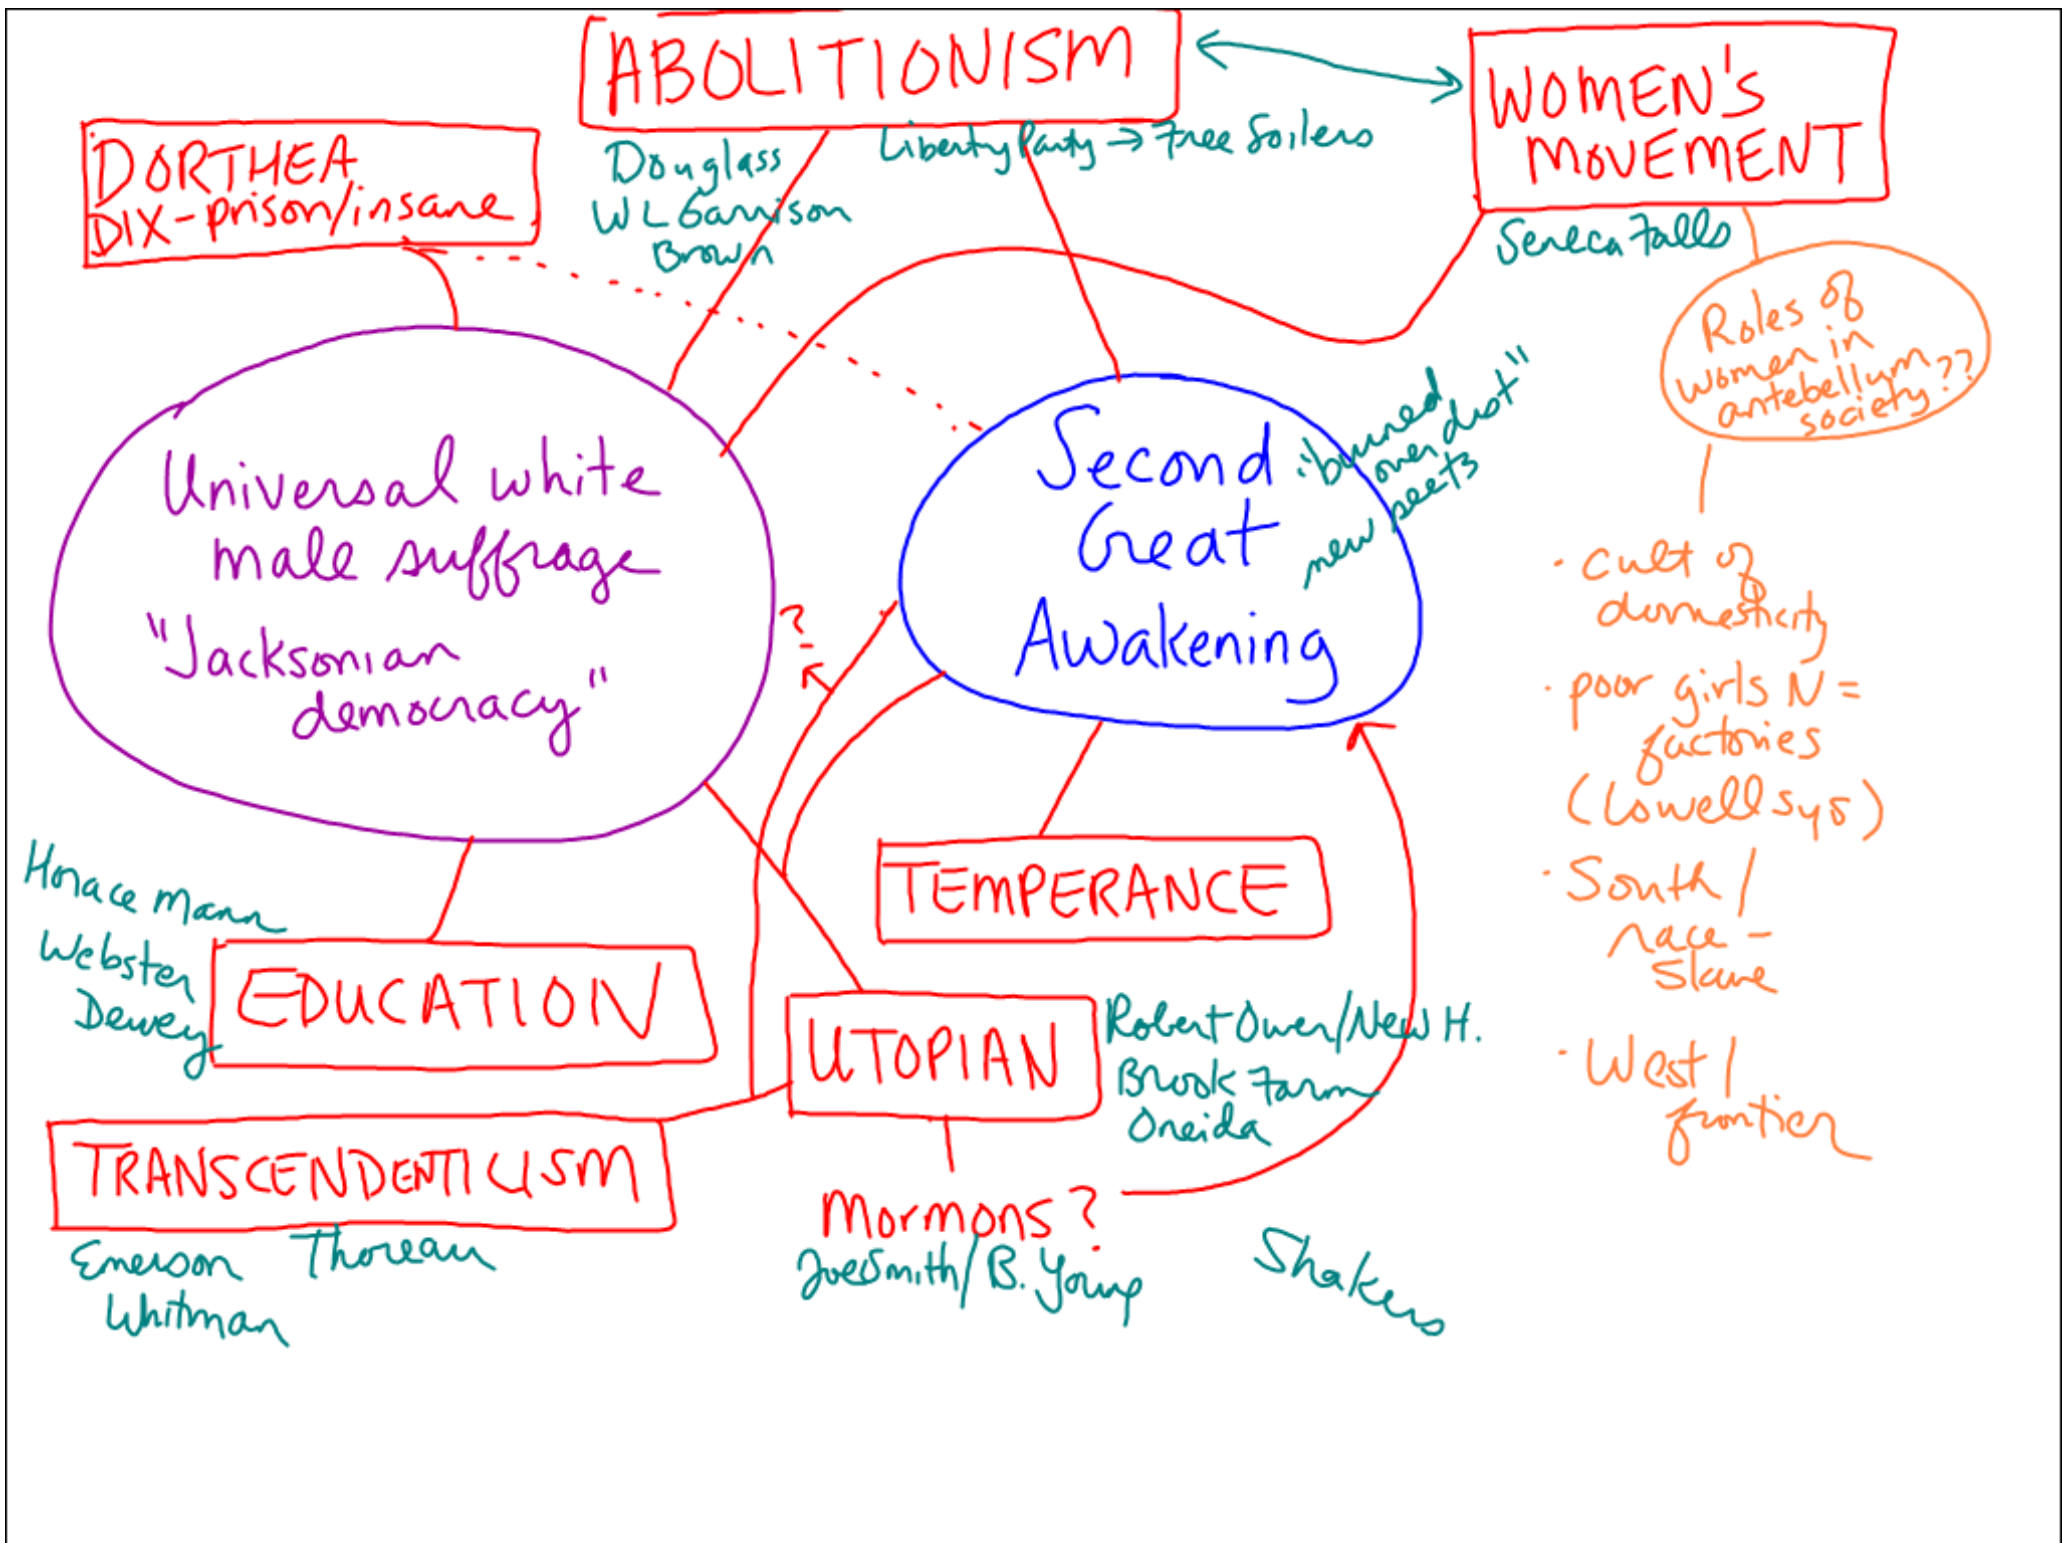 ABOLITIONISM
WOMEN'S
MOVEMENT
DORTHEA
DIX-prison/insane
Douglass
WL Garrison
Brown
Liberty Party → Free Soilers
Seneca Falls
Roles of
women in
antebellum
society??
Universal white
male suffrage
"Jacksonian
democracy"
Second
Great
Awakening
"burned
over dist"
new sects
?
· cult of
domesticity
· poor girls N =
factories
(Lowell sys)
· South /
race -
slave
· West /
frontier
TEMPERANCE
Horace Mann
Webster
Dewey
EDUCATION
UTOPIAN
Robert Owen/New H.
Brook Farm
Oneida
TRANSCENDENTICISM
Emerson Thoreau
Whitman
Mormons?
Joe Smith/B. Young
Shakers